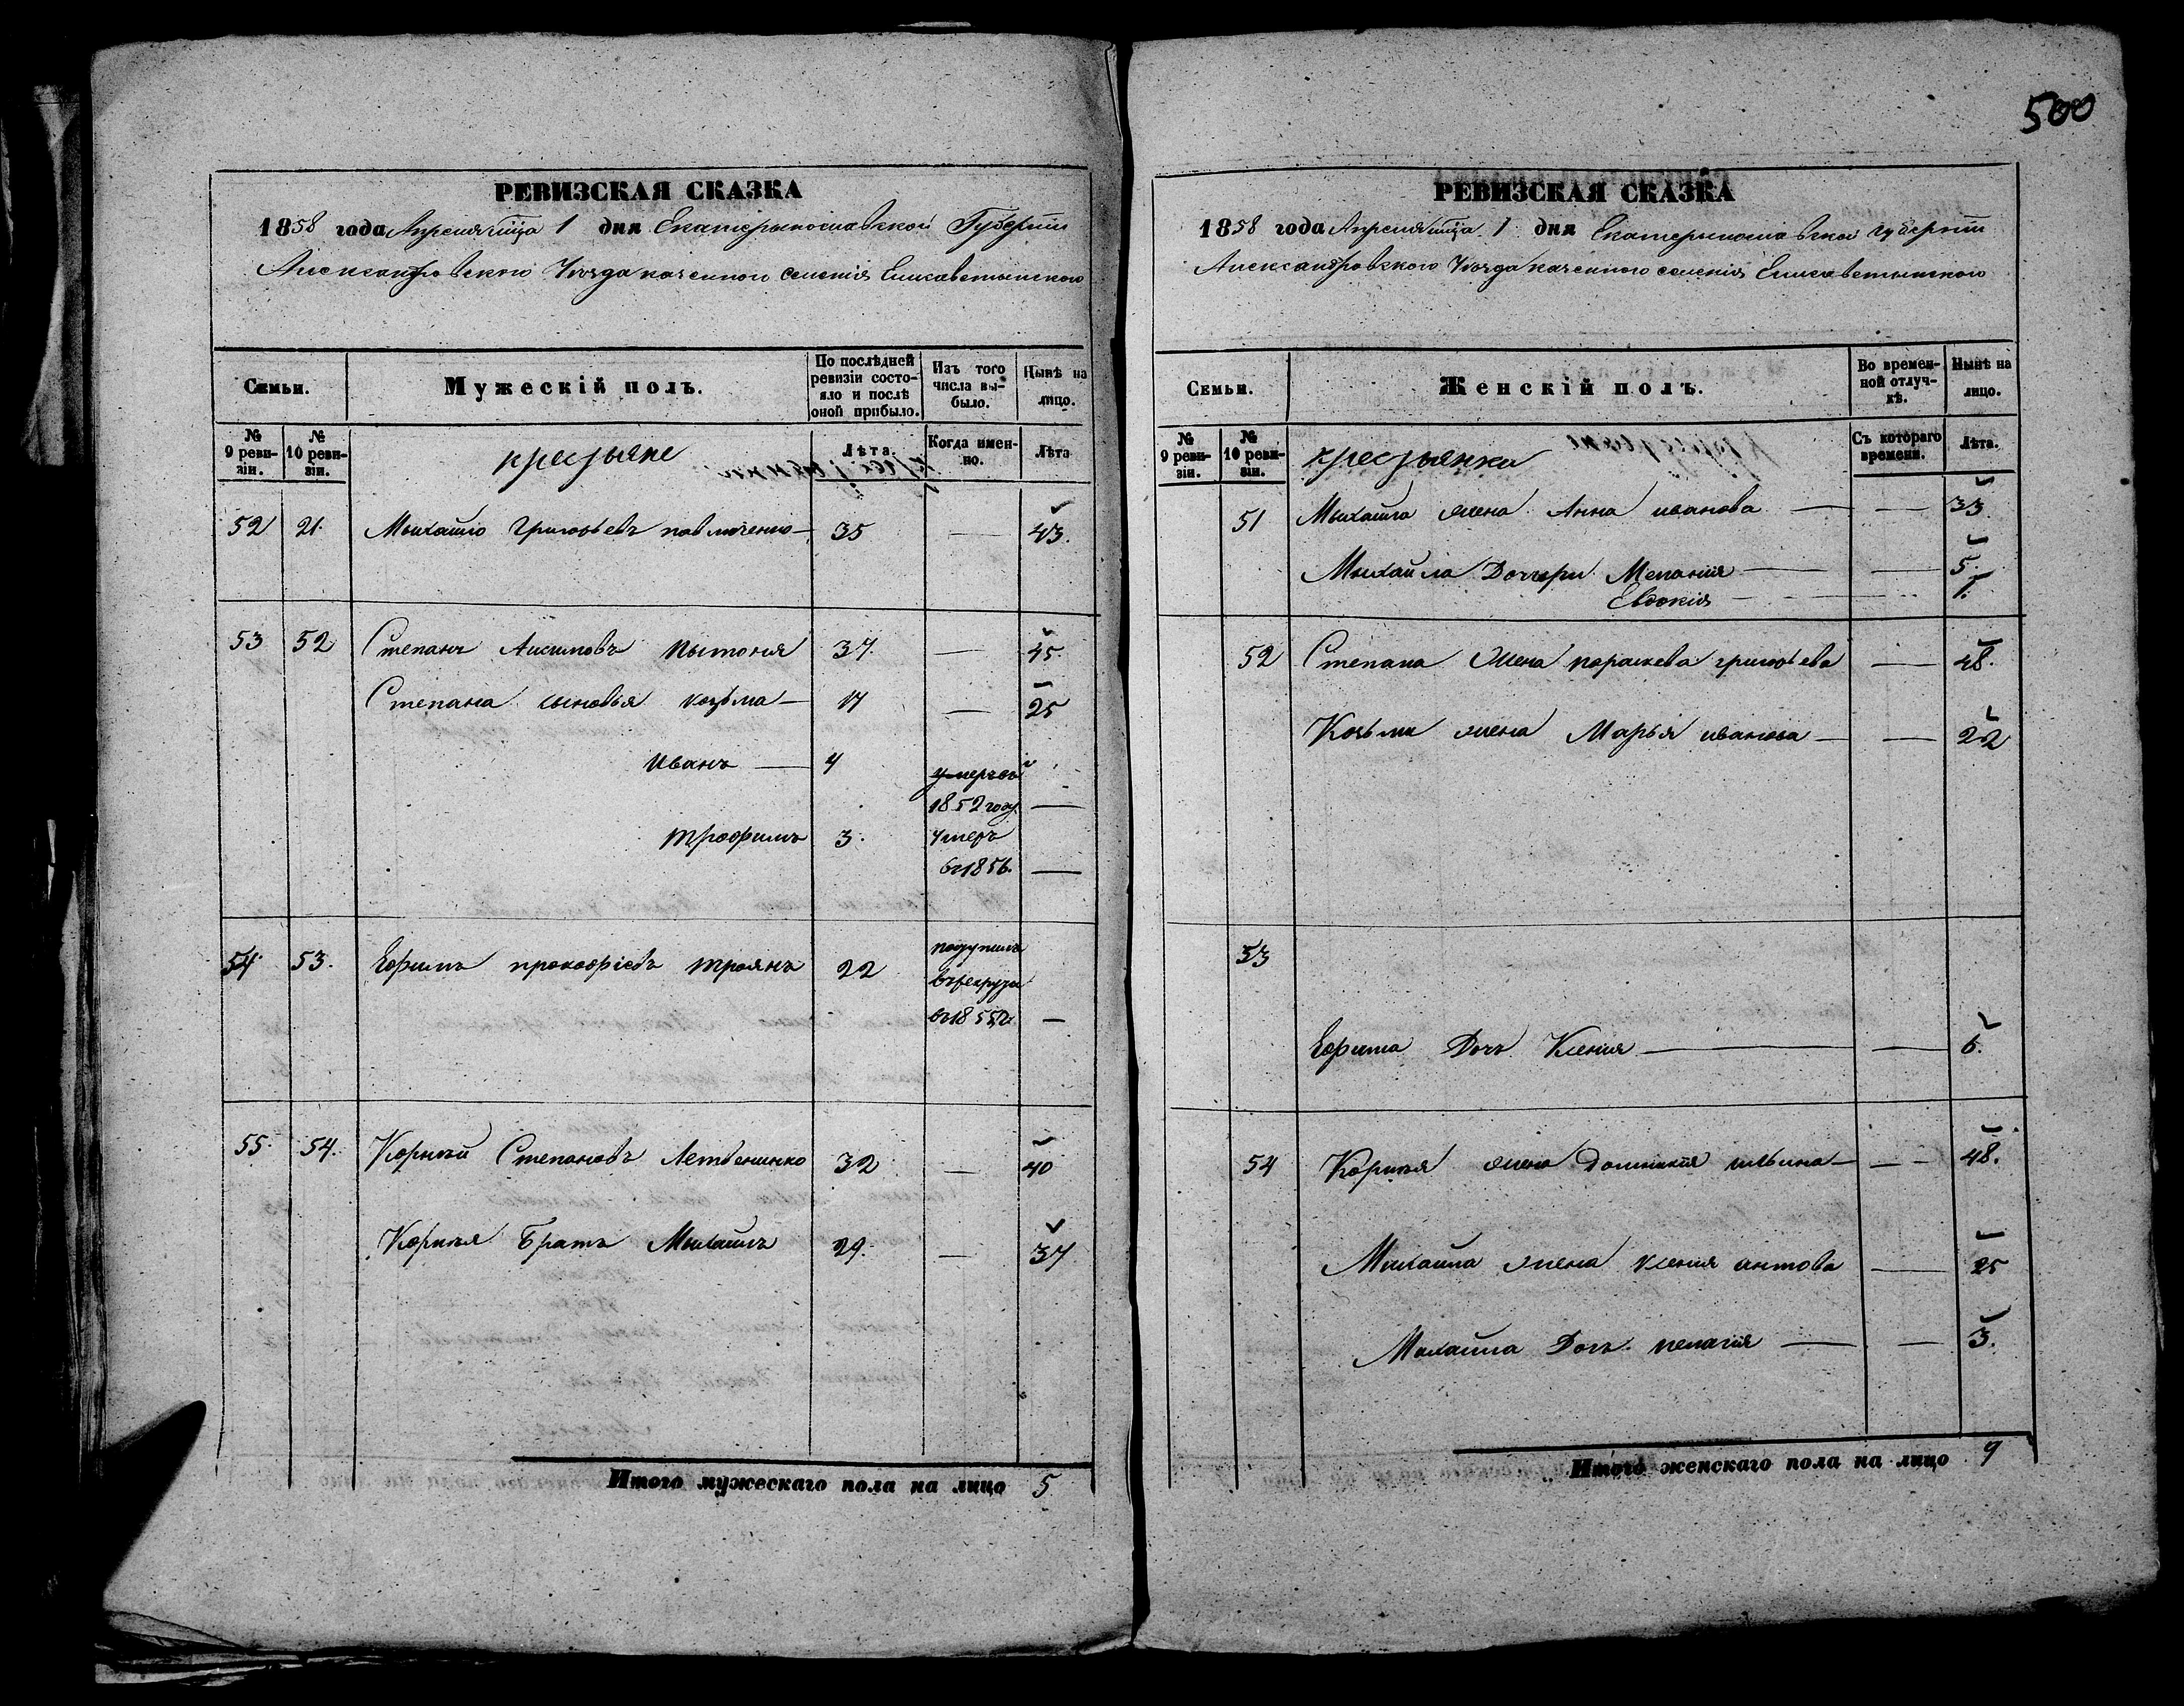 500
РЕВИЗСКАЯ СКАЗКА
1858 года Апреля мца 1 дня Екатерынославской Губернiи
Александровского Уезда казенного селенiя Елисаветынского
Семьи.
Мужескій полъ.
По послѣдней ревизіи состояло и послѣ оной прибыло.
Изъ того числа выбыло.
Нынѣ на лицо.
№ 9 ревизіи.
№ 10 ревизіи.
крестьяне
Лѣта.
Когда именно.
Лѣта
52 21. Мыхайло Григорьевъ павлюченко — 35 — 43.
53 52 Степанъ Аксиповъ 37. — 45.
Степана сыновья козьма — 17 — 25
иванъ — 4 умеръ въ
1852 году —
трофимъ 3. умеръ
въ 1856. —
54. 53. Ефимъ прокофіевъ троянъ 22 поступилъ
въ рекруты
въ 1855 —
55. 54. Корнѣй Степановъ 32 — 40
Корнѣя Братъ Мыхаилъ 29. — 37
Итого мужескаго пола на лицо 5
РЕВИЗСКАЯ СКАЗКА
1858 года Апреля мца 1 дня Екатерынославской губернiи
Александровского Уезда казенного селенiя Елисаветынского
Семьи.
Женскій полъ.
Во временной отлучкѣ.
Нынѣ на лицо.
№ 9 ревизіи.
№ 10 ревизіи.
крестьянки
Съ котораго времени.
Лѣта.
51 Мыхайла жена Анна иванова — — 33
Мыхайла Дочери Меланiя — — 5.
Евдокiя — — 1.
52 Степана жена параскева григорьева — 48.
Козьми жена Марья иванова — — 22
53
Ефима Дочь Ксения — — 6.
54 Корнѣя жена Домникiя ильина — — 48.
Михайла жена ксения антова — 25
Михайла Дочь пелагiя — — 3.
Итого женскаго пола на лицо 9